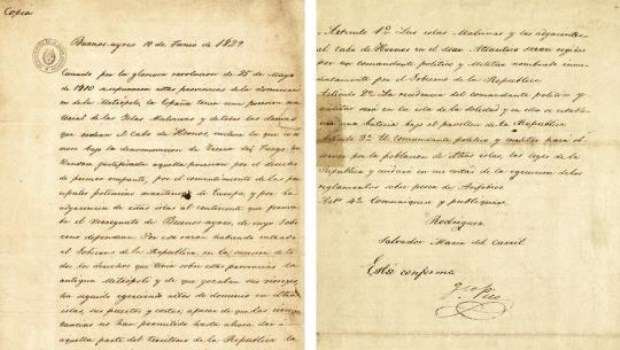 Copia
Buenos ayres 10 de Junio de 1829.
Cuando por la gloriosa revolucion de 25 de Mayo
de 1810 se separaron estas provincias de la dominacion
de la Metrópoli, la España tenia una posesion ma
terial de las Islas Malvinas y de todas las demas
que rodean el Cabo de Hornos, incluso la que se co
noce bajo la denominacion de Tierra del Fuego
hallandose justificada aquella posesion por el derecho
de primer ocupante, por el consentimiento de las prin
cipales potencias maritimas de Europa, y por la
adyacencia de estas islas al continente que forma
ba el Vireynato de Buenos ayres, de cuyo Gobi
erno dependian. Por esta razon habiendo entrado
el Gobierno de la Republica en la sucesion de to
dos los derechos que tenia sobre estas provincias la
antigua Metrópoli y de que gozaban sus vireyes,
ha seguido egerciendo actos de dominio en dichas
islas, sus puertos y costas, apesar de que las circuns
tancias no han permitido hasta ahora dar a
aquella parte del territorio de la Republica la
Articulo 1º Las islas Malvinas y las adyacentes
al cabo de Hornos en el mar Atlantico seran regidas
por un comandante politico y Militar nombrado inme
diatamente por el Gobierno de la Republica
Articulo 2º La residencia del comandante politico y
militar será en la isla de la Soledad y en ella se estable
cera una bateria bajo el pavellon de la Republica
Articulo 3º El comandante politico y militar hará ob
servar por la poblacion de dichas islas, las leyes de la
Republica y cuidará en sus costas de la egecucion de los
reglamentos sobre pesca de Anfibios
Artº 4º Comuniquese y publiquese.
Rodriguez
Salvador Maria del Carril
Está conforme